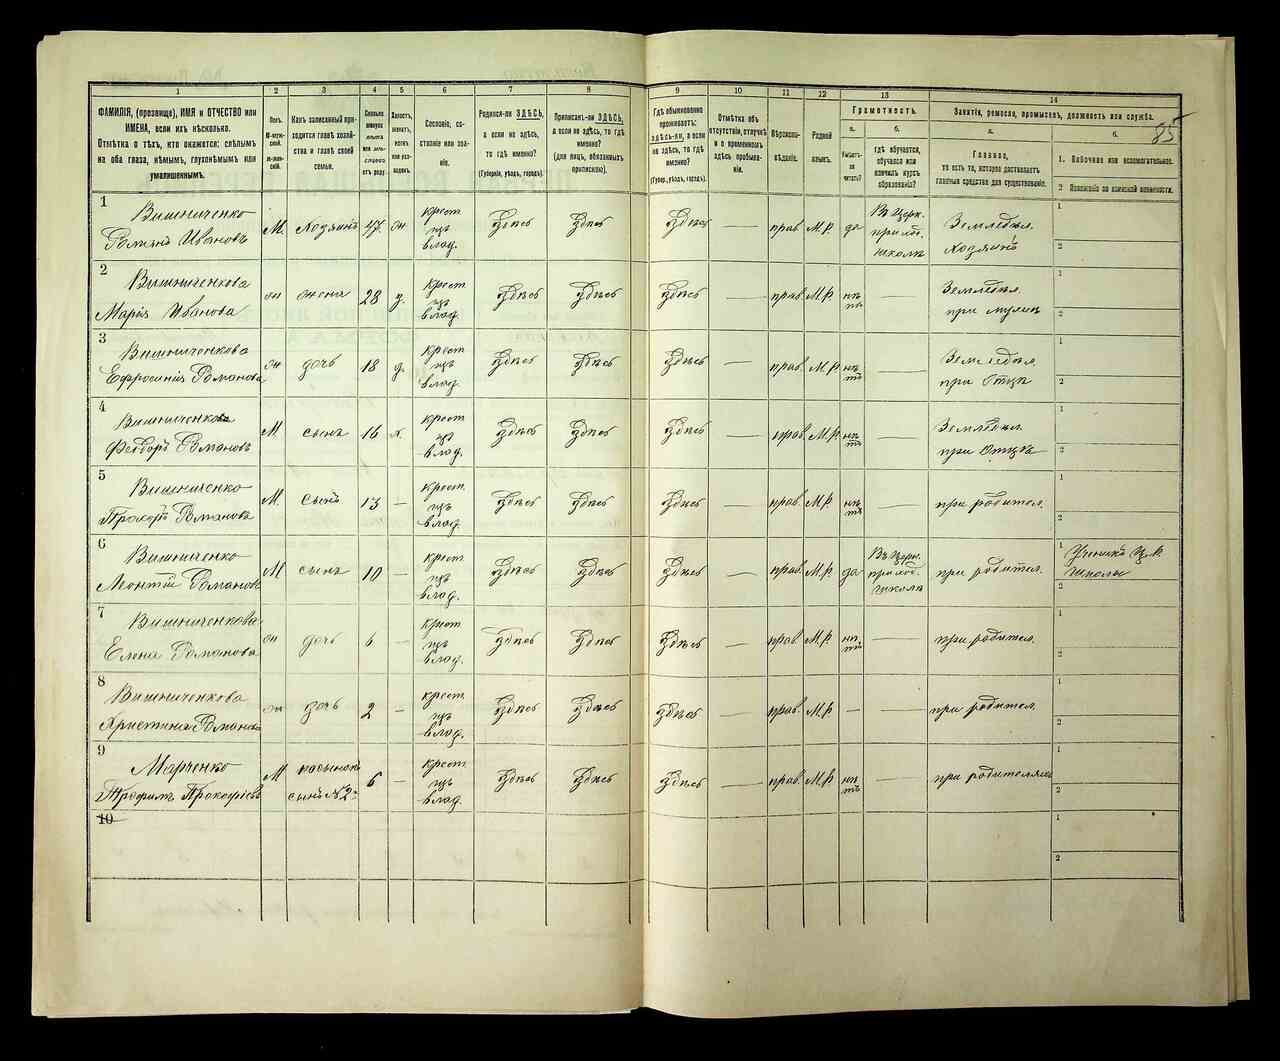 1 2 3 4 5 6 7 8 9 10 11 12 13 14
85
ФАМИЛІЯ, (прозвище), ИМЯ и ОТЧЕСТВО или
ИМЕНА, если ихъ нѣсколько.
Отмѣтка о тѣхъ, кто окажется: слѣпымъ
на оба глаза, нѣмымъ, глухонѣмымъ или
умалишеннымъ.
Какъ записанный при-
ходится главѣ хозяй-
ства и главѣ своей
семьи.
Сословіе, со-
стояніе или зва-
ніе.
Родился-ли ЗДѢСЬ,
а если не здѣсь,
то гдѣ именно?
(Губернія, уѣздъ, городъ).
Приписанъ-ли ЗДѢСЬ,
а если не здѣсь, то гдѣ
именно?
(для лицъ, обязанныхъ
припискою).
Гдѣ обыкновенно
проживаетъ:
здѣсь-ли, а если
не здѣсь, то гдѣ
именно?
(Губер., уѣздъ, городъ).
Отмѣтка объ
отсутствіи, отлучкѣ
и о временномъ
здѣсь пребыва-
ніи.
Вѣроиспо-
вѣданіе.
Родной
языкъ.
Грамотность.
а. б.
Умѣетъ-
ли
читать?
гдѣ обучается,
обучался или
кончилъ курсъ
образованія?
Занятіе, ремесло, промыселъ, должность или служба.
а. б.
Главное,
то есть то, которое доставляетъ
главныя средства для существованія.
1. Побочное или вспомогательное.
2 Положеніе по воинской повинности.
1
Вишниченко
Романъ Ивановъ
М. Хозяинъ 47 он
крест.
изъ
влад.
здѣсь здѣсь здѣсь — прав. М.Р. да
Въ церк.
приход.
школѣ
Земледѣл.
Хозяинъ
1
2
2
Вишниченкова
Марія Иванова
жена 28
крест.
изъ
влад.
здѣсь здѣсь здѣсь — прав. М.Р. нѣтъ —
Земледѣл.
при мужѣ
1
2
3
Вишниченкова
Ефросинія Романова
дочь 18
крест.
изъ
влад.
здѣсь здѣсь здѣсь — прав. М.Р. нѣтъ —
Земледѣл.
при Отцѣ
1
2
4
Вишниченко
Феодоръ Романовъ
М. сынъ 16 х.
крест.
изъ
влад.
здѣсь здѣсь здѣсь — прав. М.Р. нѣтъ —
Земледѣл.
при Отцѣ
1
2
5
Вишниченко
Прохоръ Романовъ
М. сынъ 13 —
крест.
изъ
влад.
здѣсь здѣсь здѣсь — прав. М.Р. нѣтъ —
при родител.
1
2
6
Вишниченко
Леонтій Романовъ
М сынъ 10 —
крест.
изъ
влад.
здѣсь здѣсь здѣсь — прав. М.Р. да
Въ Церк.
приход.
школѣ
при родител.
1 Ученикъ Ц.П.
школы
2
7
Вишниченкова
Елена Романова
дочь 6 —
крест.
изъ
влад.
здѣсь здѣсь здѣсь — прав. М.Р. нѣтъ —
при родител.
1
2
8
Вишниченкова
Христина Романова
дочь 2 —
крест.
изъ
влад.
здѣсь здѣсь здѣсь — прав. М.Р. — —
при родител.
1
2
9
Марченко
Трофимъ Прокофіевъ
М пасынокъ
сынъ №2й
6 —
крест.
изъ
влад.
здѣсь здѣсь здѣсь — прав. М.Р. нѣтъ —
при родителяхъ
1
2
10
1
2